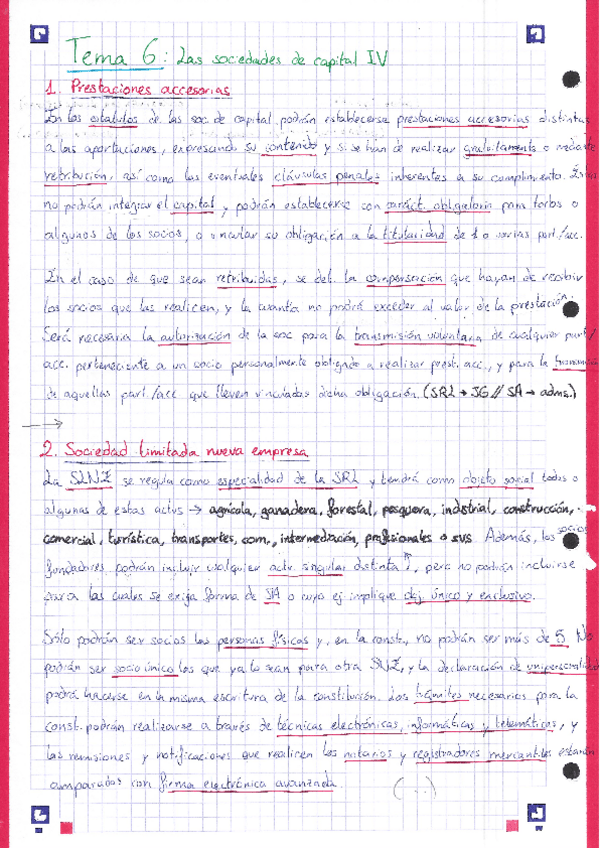 Tema 6: Las sociedades de capital IV
1. Prestaciones accesorias
En los estatutos de las soc de capital, podrán establecerse prestaciones accesorias distintas
a las aportaciones, expresando su contenido y si se han de realizar gratuitamente o mediante
retribución, así como las eventuales cláusulas penales inherentes a su cumplimiento. Estas
no podrán integrar el capital y podrán establecerse con caráct. obligatorio para todos o
algunos de los socios, o vincular su obligación a la titularidad de 1 o varias part/acc.
En el caso de que sean retribuidas, se det. la compensación que hayan de recibir
los socios que las realicen, y la cuantía no podrá exceder al valor de la prestación.
Será necesaria la autorización de la soc para la transmisión voluntaria de cualquier part/
acc. perteneciente a un socio personalmente obligado a realizar prest. acc., y para la
de aquellas part./acc que lleven vinculada dicha obligación. (SRL → JG // SA → adms.)
→
2. Sociedad limitada nueva empresa
La SLNE se regula como especialidad de la SRL y tendrá como objeto social todas o
algunas de estas activs → agrícola, ganadera, forestal, pesquera, industrial, construcción,
comercial, turística, transportes, com., intermediación, profesionales o svs. Además, los socios
fundadores podrán incluir cualquier actv. singular distinta ↑, pero no podrán incluirse
las cuales se exija forma de SA o cuyo ej implique obj. único y exclusivo.
Sólo podrán ser socios las personas físicas y, en la const., no podrán ser más de 5. No
podrán ser socio único los que ya lo sean para otra SLNE, y la declaración de unipersonalidad
podrá hacerse en la misma escritura de la constitución. Los trámites necesarios para la
const. podrán realizarse a través de técnicas electrónicas, informáticas y telemáticas, y
las remisiones y notificaciones que realicen los notarios y registradores mercantiles estarán
amparados con firma electrónica avanzada. (...)